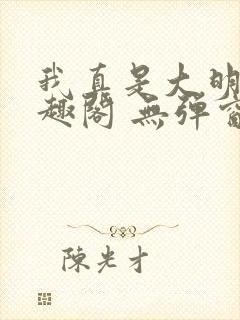 我真是大明
趣閣 無彈窗
陳光才